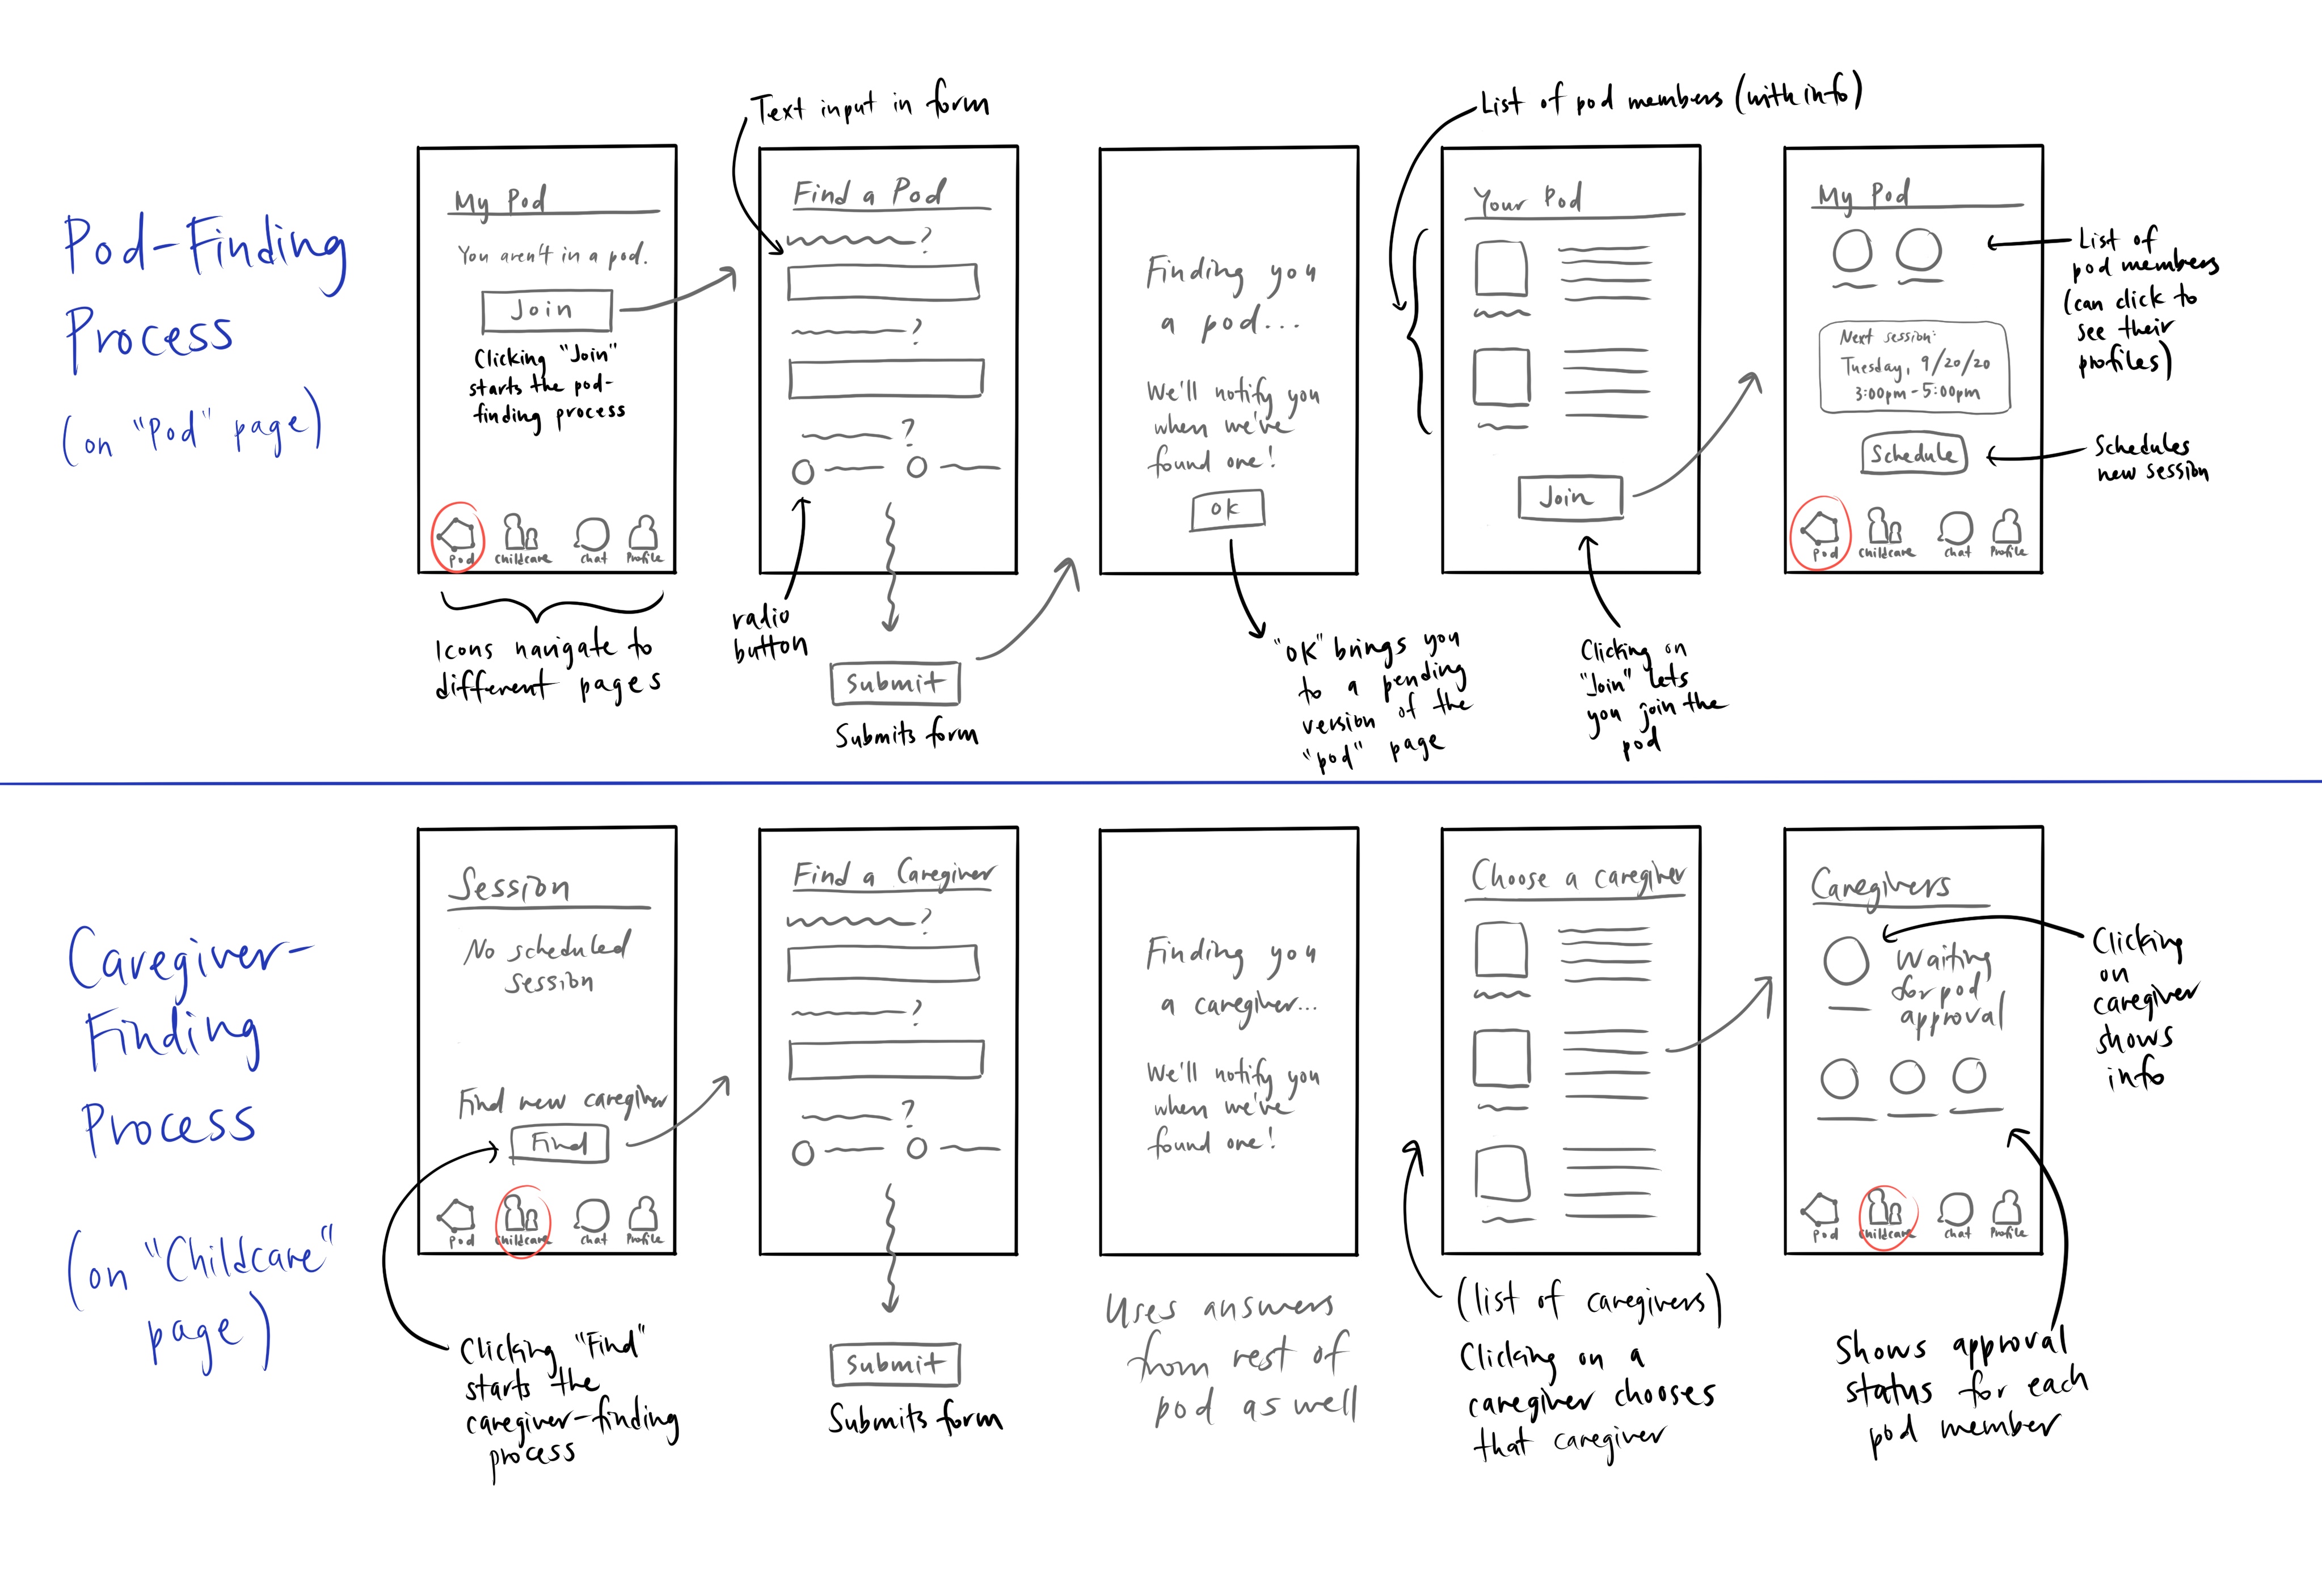 Pod-Finding
Process
(on "Pod" page)
My Pod
You aren't in a pod.
Join
Clicking "Join"
starts the pod-
finding process
pod
childcare
chat
Profile
Icons navigate to
different pages
Text input in form
Find a Pod
?
?
?
radio
button
Submit
Submits form
Finding you
a pod...
We'll notify you
when we've
found one!
OK
"OK" brings you
to a pending
version of the
"pod" page
List of pod members (with info)
Your Pod
Join
Clicking on
"Join" lets
you join the
pod
My Pod
Next session:
Tuesday, 9/20/20
3:00pm-5:00pm
Schedule
pod
childcare
chat
Profile
List of
pod members
(can click to
see their
profiles)
Schedules
new session
Caregiver-
Finding
Process
(on "Childcare"
page)
Session
No scheduled
session
Find new caregiver
Find
pod
childcare
chat
Profile
Clicking "Find"
starts the
caregiver-finding
process
Find a Caregiver
?
?
?
Submit
Submits form
Finding you
a caregiver...
We'll notify you
when we've
found one!
Uses answers
from rest of
pod as well
Choose a caregiver
(list of caregivers)
Clicking on a
caregiver chooses
that caregiver
Caregivers
Waiting
for pod
approval
pod
childcare
chat
Profile
Clicking
on
caregiver
shows
info
Shows approval
status for each
pod member